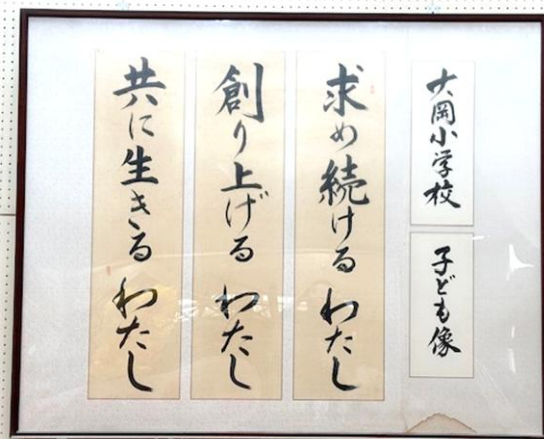 大岡小学校
子ども像
求め続ける わたし
創り上げる わたし
共に生きる わたし